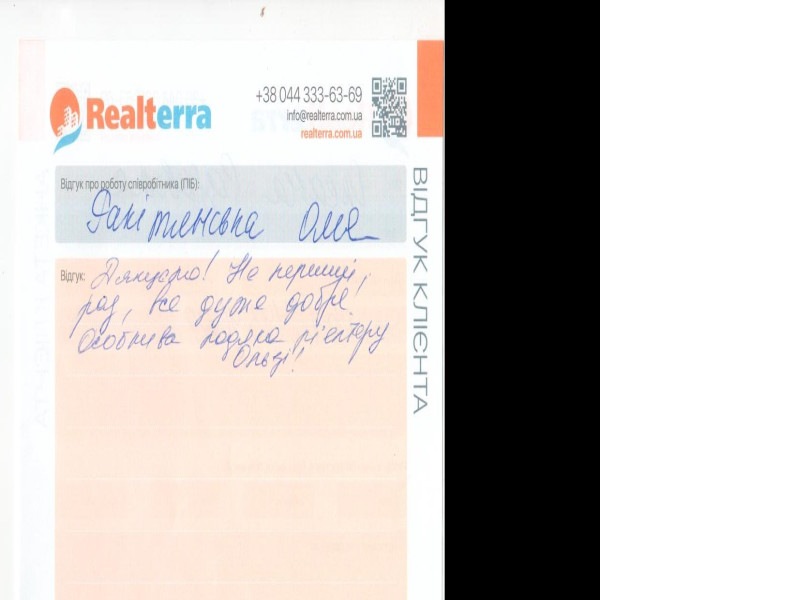 Realterra
+38 044 333-63-69
info@realterra.com.ua
realterra.com.ua
Відгук про роботу співробітника (ПІБ):
Оля
Відгук: Дякуємо! Не перший
раз, все дуже добре.
Особлива подяка рієлтору
Ользі!
ВІДГУК КЛІЄНТА